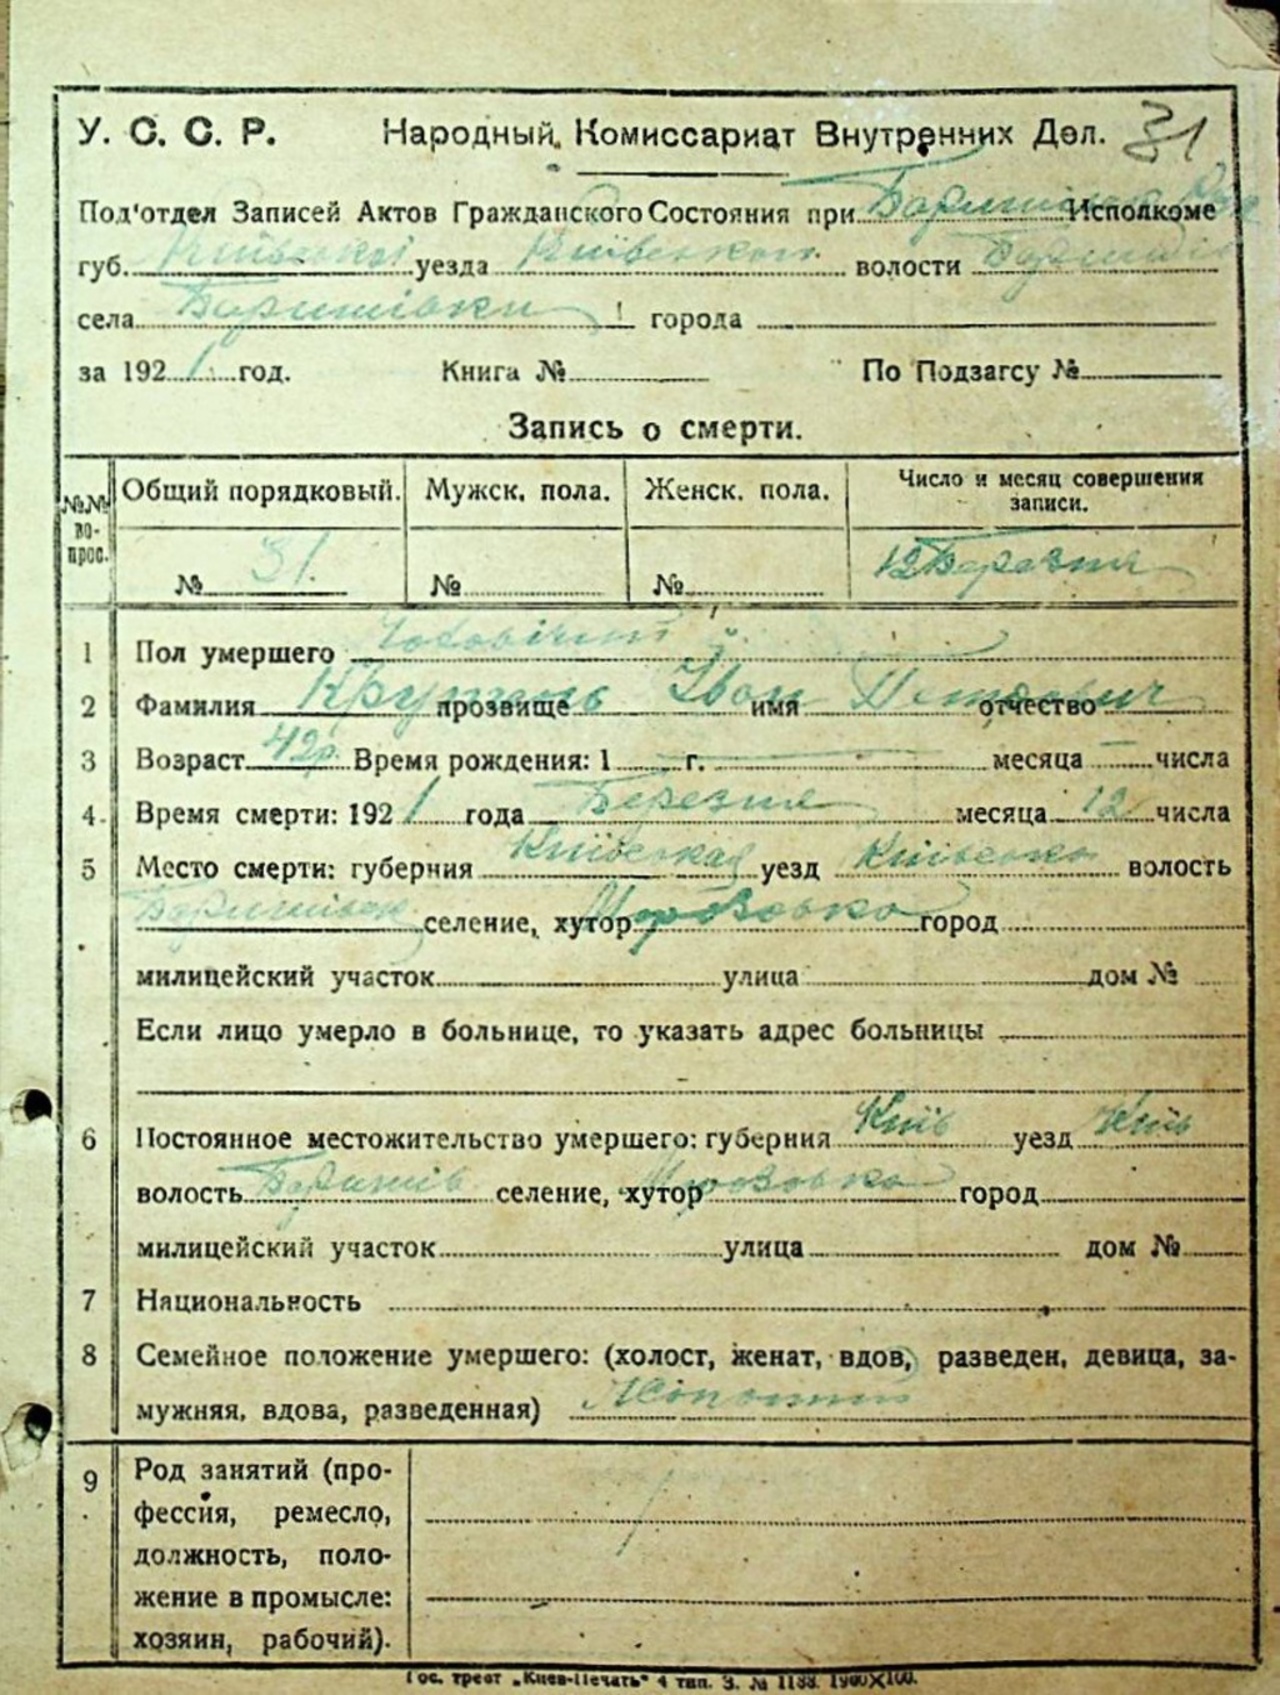 У. С. С. Р. Народный Комиссариат Внутренних Дел. 31
Под'отдел Записей Актов Гражданского Состояния при Исполкоме
губ. Київської уезда Київського волости
села Баришівки города
за 1921 год. Книга № По Подзагсу №
Запись о смерти.
№№ во-прос. Общий порядковый. Мужск. пола. Женск. пола. Число и месяц совершения записи.
№ 31. № № 12 Березня
1 Пол умершего Чоловічий
2 Фамилия прозвище имя Іван отчество Петрович
3 Возраст 42р. Время рождения: 1 г. месяца числа
4 Время смерти: 1921 года Березня месяца 12 числа
5 Место смерти: губерния Київська уезд Київсько волость
селение, хутор город
милицейский участок улица дом №
Если лицо умерло в больнице, то указать адрес больницы
6 Постоянное местожительство умершего: губерния Київ уезд Київ
волость Баришів селение, хутор город
милицейский участок улица дом №
7 Национальность
8 Семейное положение умершего: (холост, женат, вдов, разведен, девица, за-
мужняя, вдова, разведенная)
9 Род занятий (про-
фессия, ремесло,
должность, поло-
жение в промысле:
хозяин, рабочий).
Гос. трест „Киев-Печать" 4 тип. З. № 1188. 1900Х100.